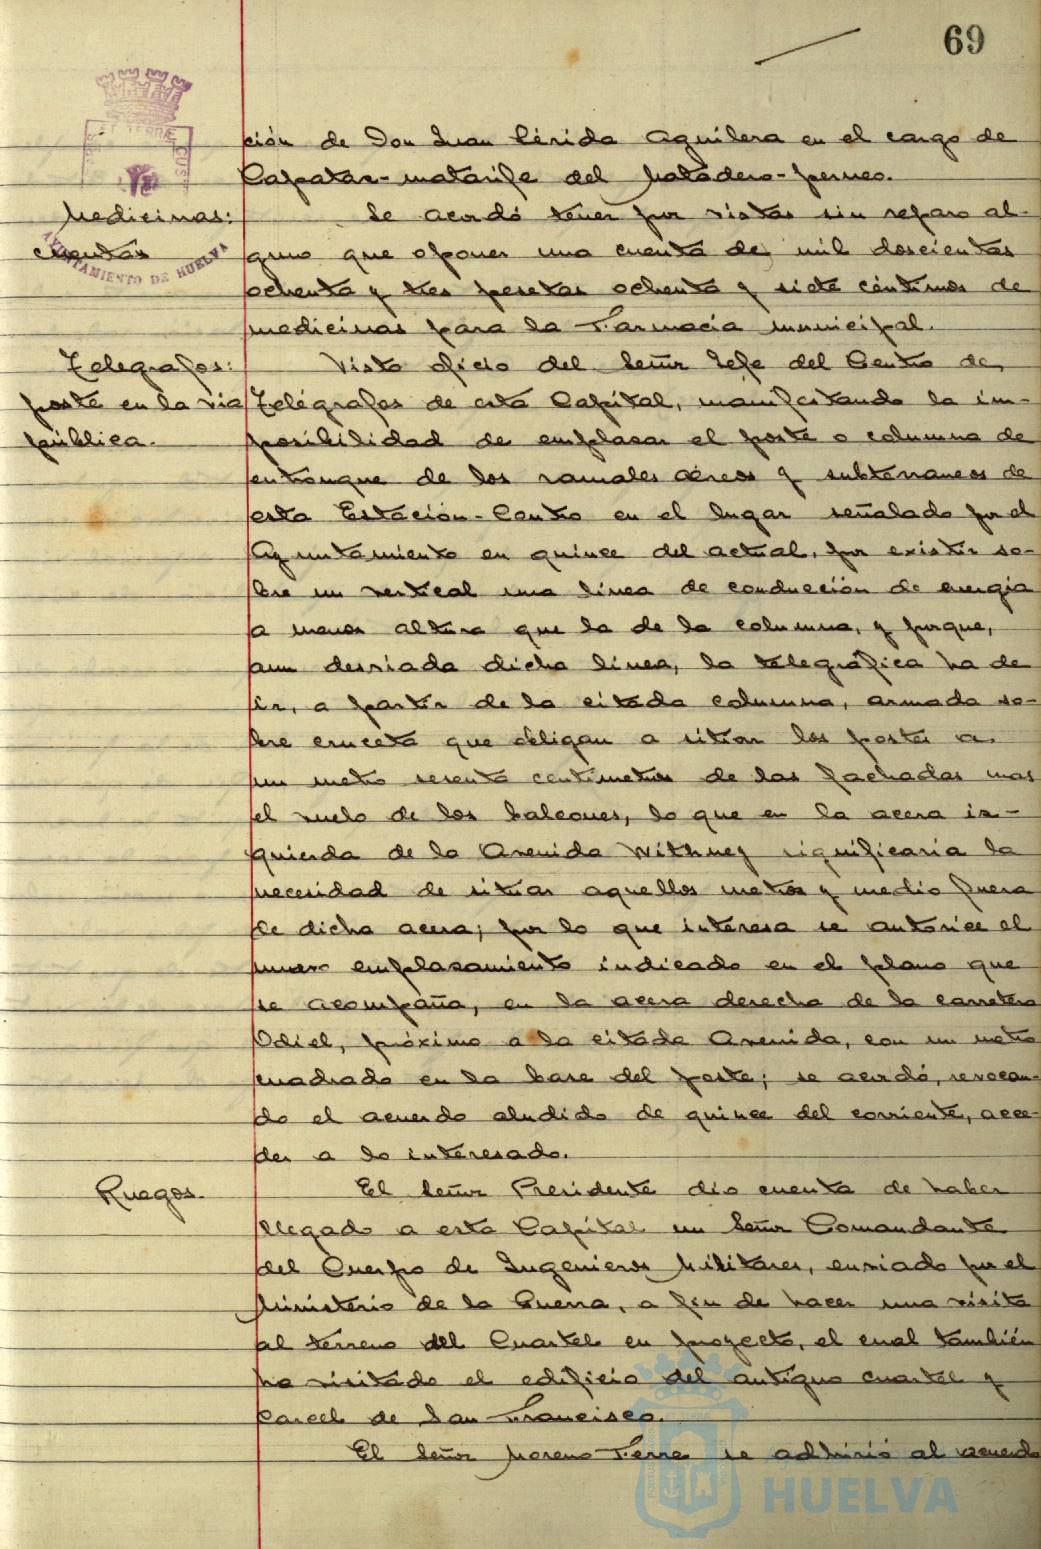 69
ción de Don Juan Lérida Aguilera en el cargo de
Capataz-matarife del Matadero-perneo.
Medicinas:
cuentas
Se acordó tener por vistas sin reparo al-
guno que oponer una cuenta de mil doscientas
ochenta y tres pesetas ochenta y siete céntimos de
medicinas para la Farmacia municipal.
Telegrafos:
poste en la via
pública.
Visto oficio del Señor Jefe del Centro de
Telégrafos de esta Capital, manifestando la im-
posibilidad de emplazar el poste o columna de
entronque de los ramales aéreos y subterraneos de
esta Estación-Centro en el lugar señalado por el
Ayuntamiento en quince del actual, por existir so-
bre un vertical una línea de conducción de energía
a menor altura que la de la columna, y porque,
aun desviada dicha línea, la telegráfica ha de
ir, a partir de la citada columna, armada so-
bre cruceta que obligan a sitiar los postes a
un metro sesenta centimetros de las fachadas mas
el vuelo de los balcones, lo que en la acera iz-
quierda de la Avenida Withney significaria la
necesidad de sitiar aquellos metros y medio fuera
de dicha acera; por lo que interesa se autorice el
nuevo emplazamiento indicado en el plano que
se acompaña, en la acera derecha de la carretera
Odiel, próximo a la citada Avenida, con un metro
cuadrado en la base del poste; se acordó, revocan-
do el acuerdo aludido de quince del corriente, acce-
der a lo interesado.
Ruegos.
El Señor Presidente dio cuenta de haber
llegado a esta Capital un Señor Comandante
del Cuerpo de Ingenieros Militares, enviado por el
Ministerio de la Guerra, a fin de hacer una visita
al terreno del Cuartel en proyecto, el cual también
ha visitado el edificio del antiguo cuartel y
carcel de San Francisco.
El Señor Moreno Ferre se adhirió al acuerdo
AYUNTAMIENTO DE HUELVA
HUELVA